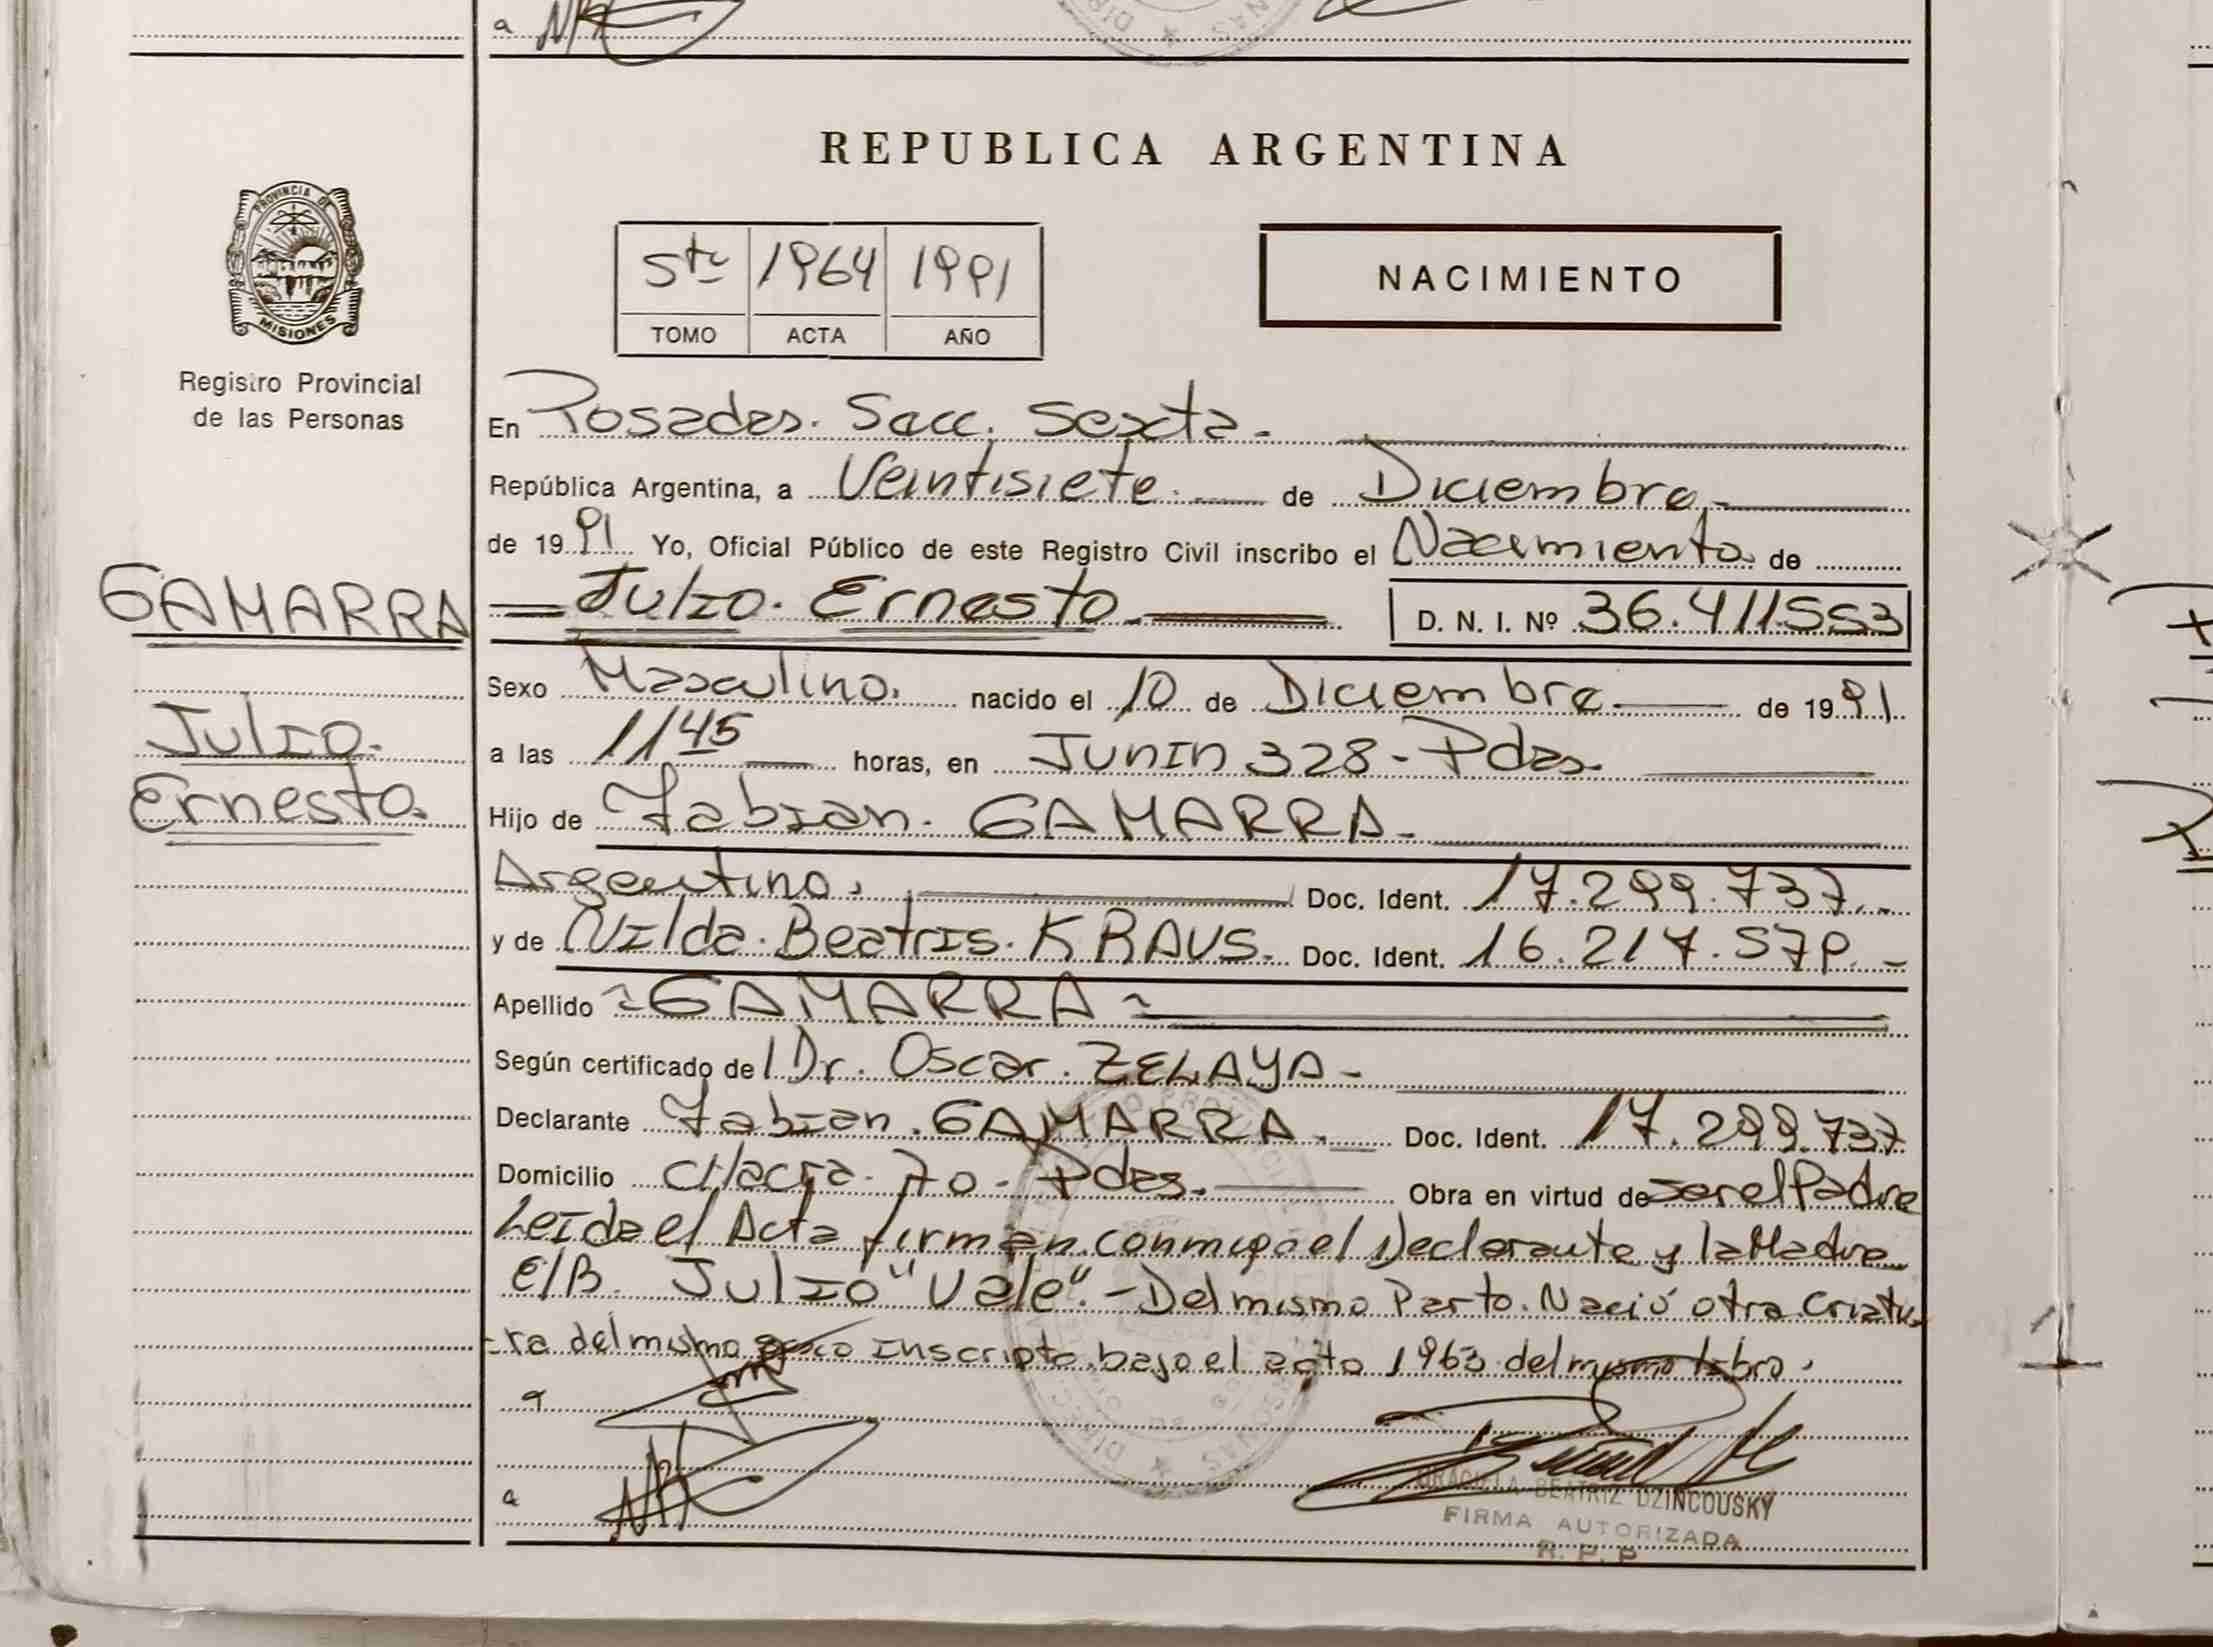 a
REPUBLICA ARGENTINA
PROVINCIA DE
MISIONES
Registro Provincial
de las Personas
5to 1964 1991
TOMO ACTA AÑO
NACIMIENTO
En Posadas. Secc. Sexta.
República Argentina, a Veintisiete de Diciembre
de 1991 Yo, Oficial Público de este Registro Civil inscribo el Nacimiento de
Julio. Ernesto D. N. I. Nº 36.411.553
GAMARRA
Julio.
Ernesto.
Sexo Masculino. nacido el 10 de Diciembre de 1991
a las 11 45 horas, en Junin 328 - Pdas.
Hijo de Fabian. GAMARRA
Argentino. Doc. Ident. 17.299.737
y de Nilda. Beatris. KRAUS. Doc. Ident. 16.217.579
Apellido GAMARRA
Según certificado del Dr. Oscar. ZELAYA
Declarante Fabian. GAMARRA Doc. Ident. 17.299.737
Domicilio CHacra. 70. Pdas. Obra en virtud de ser el Padre
Leida el Acta firman conmigo el Declarante y la Madre
E/B. Julio "Vale". - Del mismo Parto. Nació otra Criatu
-ra del mismo sexo inscripto bajo el acta 1963 del mismo libro.
a
a
GRACIELA BEATRIZ DZINCOUSKY
FIRMA AUTORIZADA
R. P. P